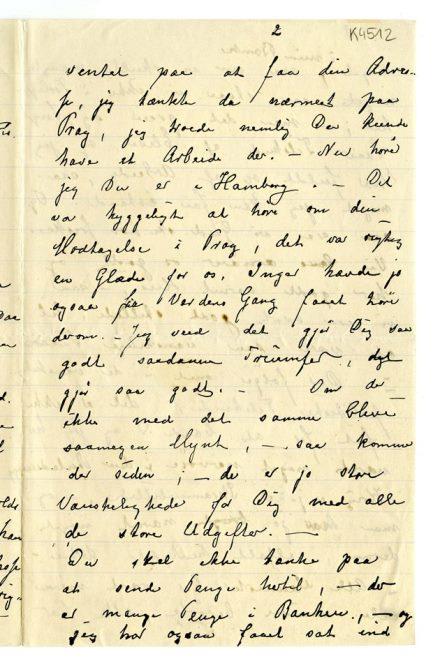 2
K4512
ventet paa at faa din Adres-
se, jeg tænkte da nærmest paa
Prag, jeg troede nemlig Du kunde
have et Arbeide der. – Nu hører
jeg Du er i Hamborg. – Det
var hyggeligt at høre om din
Modtagelse i Prag, det var rigtig
en Glæde for os. Inger havde jo
ogsaa fra Verdens Gang faaet høre
derom. – Jeg veed det gjør Dig saa
godt saadanne Triumfer, det
gjør saa godt. – Om der
ikke med det samme blive
saamegen Mynt, – saa kommer
der siden; – der er jo store
Vanskeligheder for Dig med alle
de store Udgifter. –
Du skal ikke tænke paa
at sende Penge hertil, – der
er mange Penge i Banken, – og
jeg har ogsaa faaet sat ind